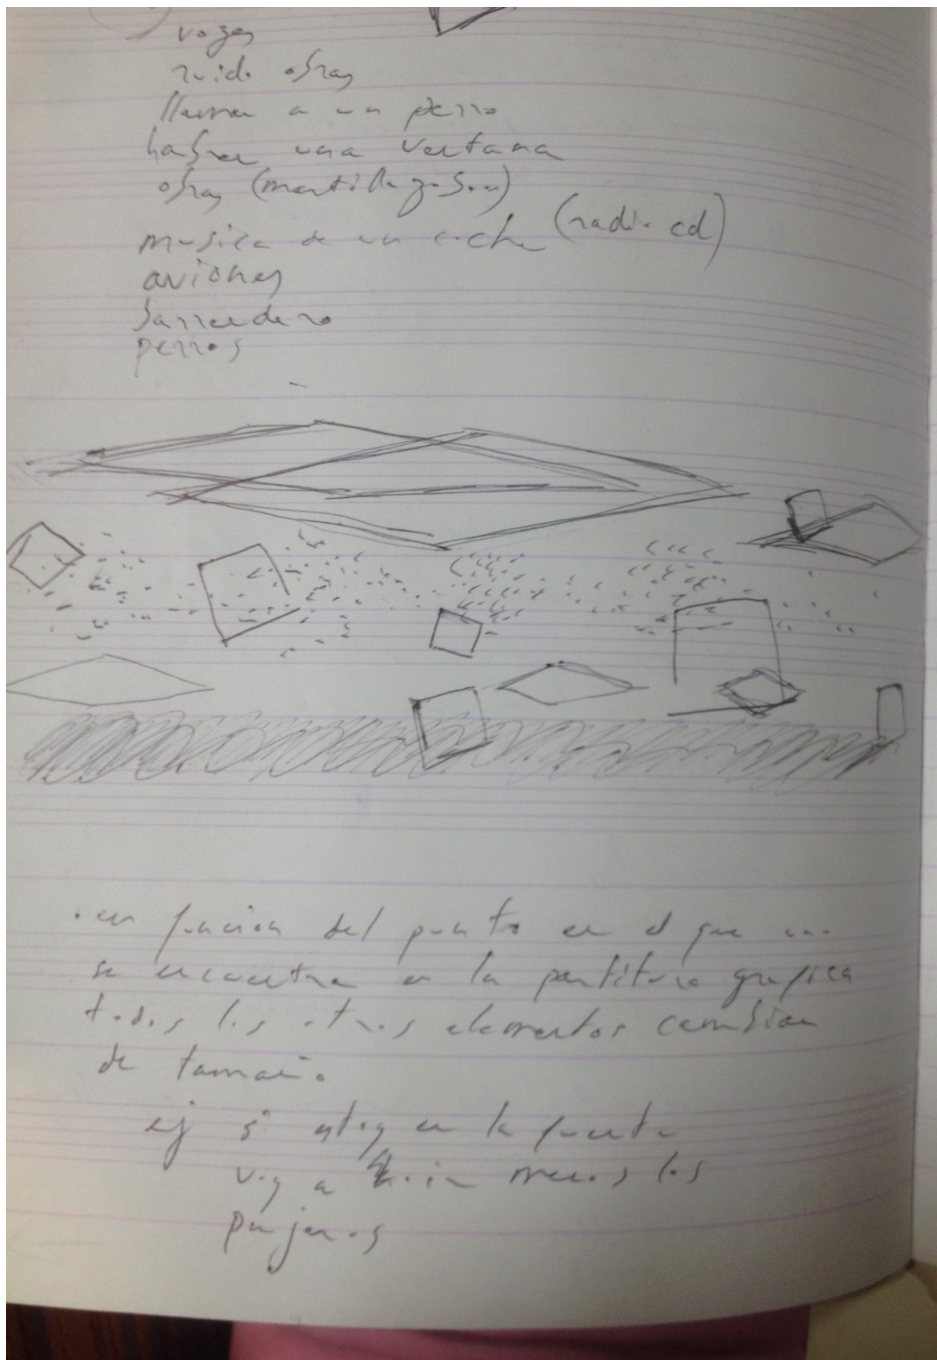 vozes
ruido obras
llama a un perro
habre una ventana
obras (martillazos)
musica de un coche (radio cd)
aviones
barrendero
perros
• en funcion del punto en el que uno
se encuentra en la partitura grafica
todos los otros elementos cambian
de tamaño
ej si estoy en la puerta
voy a oir menos los
pajaros